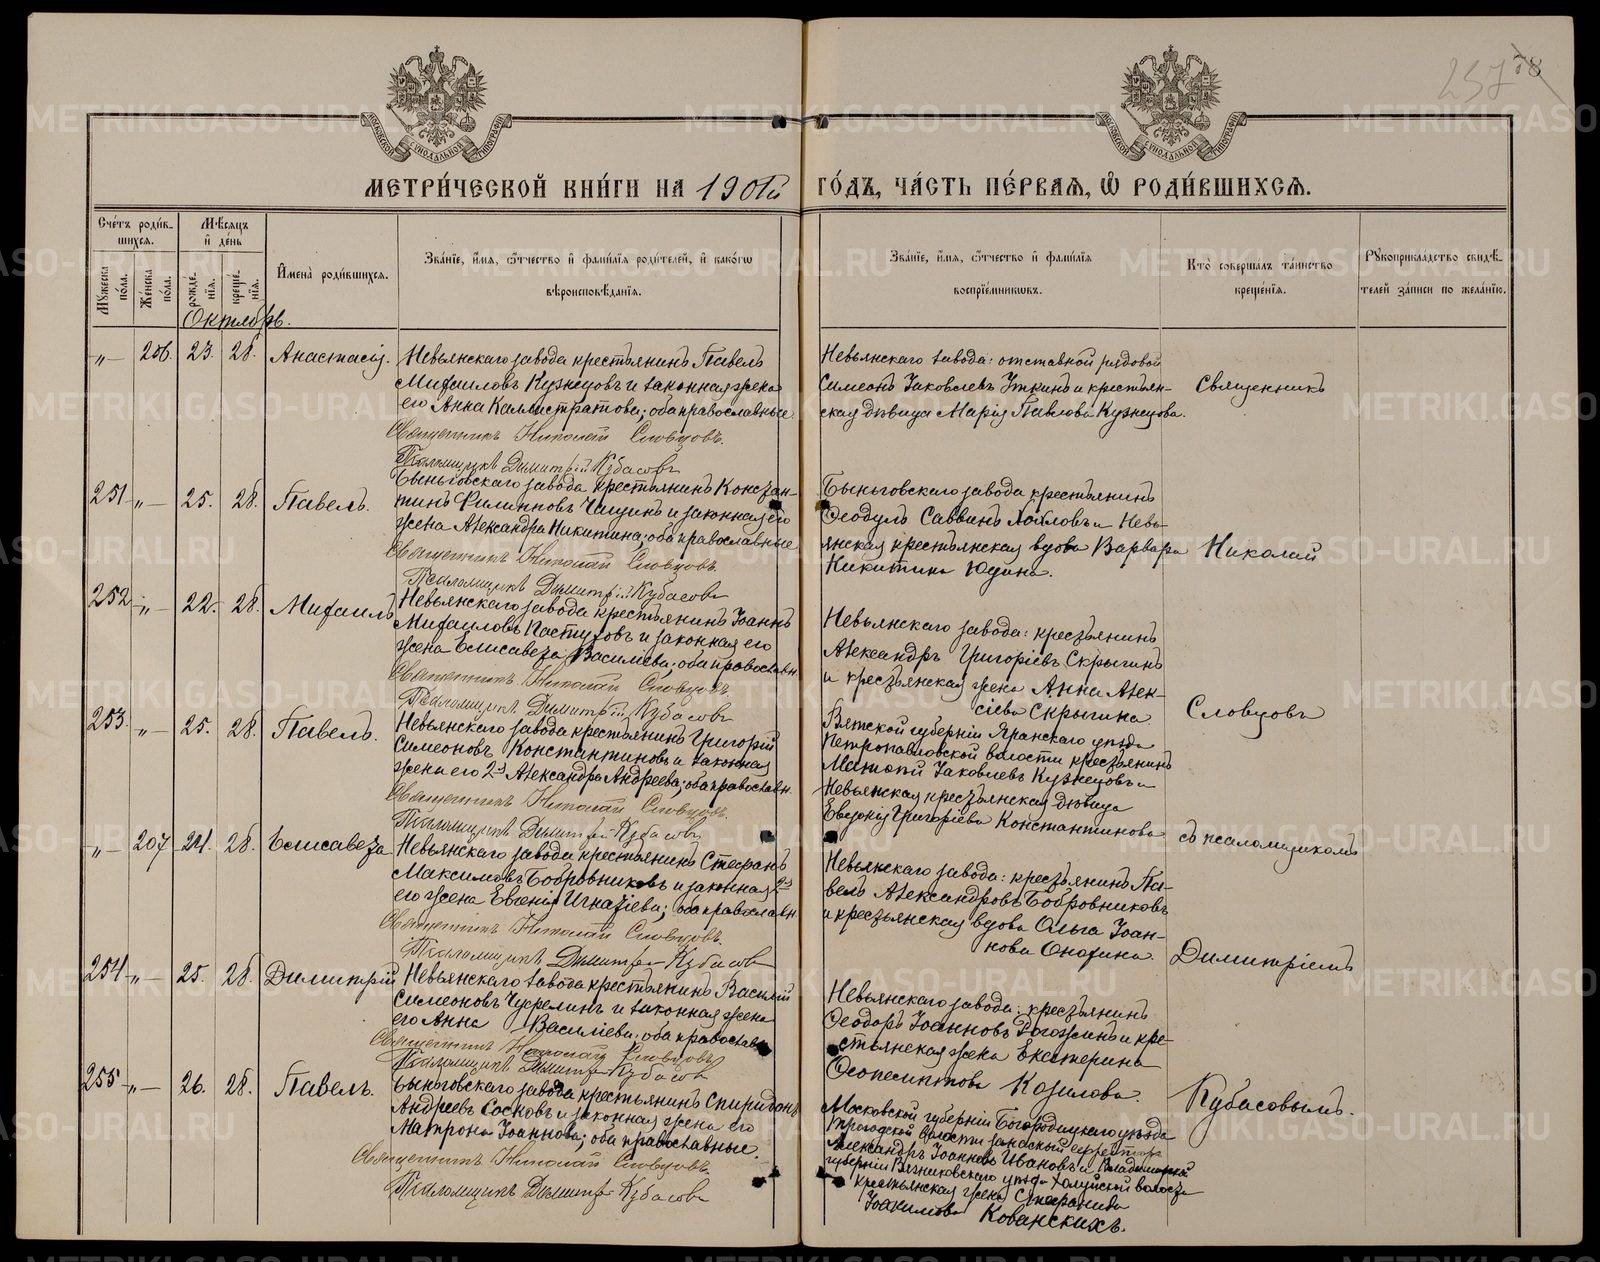 257 78
МЕТРИ́ЧЕСКОЙ КНИ́ГИ НА 1901й ГО́ДЪ, ЧА́СТЬ ПЕ́РВАѦ, Ѡ҆ РОДИ́ВШИХСѦ.
МОСКОВСКОЙ СУНОДАЛЬНОЙ ТИПОГРАФІИ
МОСКОВСКОЙ СУНОДАЛЬНОЙ ТИПОГРАФІИ
Сче́тъ роди́в-
шихсѧ.
Мꙋ́жеска по́ла.
Же́нска по́ла.
Мѣ́сѧцъ
и҆ де́нь
рожде́-
нїѧ.
креще́-
нїѧ.
И҆мена̀ роди́вшихсѧ.
Зва́нїе, и҆́мѧ, ѻ҆́тчество и҆ фами́лїѧ роди́телей, и҆ како́гѡ
вѣроисповѣ́данїѧ.
Зва́нїе, и҆́мѧ, ѻ҆́тчество и҆ фами́лїѧ
воспрїе́мникѡвъ.
Кто̀ соверша́лъ та́инство
креще́нїѧ.
Рꙋкоприкла́дство свидѣ́-
телей за́писи по жела́нїю.
Октябрь.
„— 206. 23. 28. Анастасія.
Невьянскаго завода крестьянинъ Павелъ
Михаиловъ Кузнецовъ и законная жена
его Анна Каллистратова; оба православные
Священникъ Николай Словцовъ.
Псаломщикъ Димитрій Кубасовъ
Невьянскаго завода: отставной рядовой
Симеонъ Іаковлевъ Уткинъ и крестьян-
ская дѣвица Марія Павлова Кузнецова.
Священникъ
251 „— 25. 28. Павелъ.
Быньговскаго завода крестьянинъ Констан-
тинъ Филипповъ Чащинъ и законная его
жена Александра Никитина; оба православные
Священникъ Николай Словцовъ
Псаломщикъ Димитрій Кубасовъ
Быньговскаго завода крестьянинъ
Ѳеодулъ Саввинъ и Невь-
янская крестьянская вдова Варвара
Никитина Юдина.
Николай
252 „— 22. 28. Михаилъ
Невьянскаго завода крестьянинъ Іоаннъ
Михаиловъ Пастуховъ и законная его
жена Елисавета Васильева; оба православн.
Священникъ Николай Словцовъ.
Псаломщикъ Димитрій Кубасовъ
Невьянскаго завода: крестьянинъ
Александръ Григоріевъ Скрыгинъ
и крестьянская жена Анна Алек-
сіева Скрыгина
Словцовъ
253. „— 25. 28. Павелъ.
Невьянскаго завода крестьянинъ Григорій
Симеоновъ Константиновъ и законная
жена его 2я Александра Андреева; оба православн.
Священникъ Николай Словцовъ.
Псаломщикъ Димитрій Кубасовъ
Вятской губерніи Яранскаго уѣзда
Петропавловской волости крестьянинъ
Матѳей Іаковлевъ Кузнецовъ и
Невьянская крестьянская дѣвица
Евдокія Григоріева Константинова
съ псаломщикомъ
„— 207 24. 28. Елисавета
Невьянскаго завода крестьянинъ Стефанъ
Максимовъ Бобровниковъ и законная 2я
его жена Евгенія Игнатіева; оба православн.
Священникъ Николай Словцовъ.
Псаломщикъ Димитрій Кубасовъ
Невьянскаго завода: крестьянинъ Па-
велъ Александровъ Бобровниковъ
и крестьянская вдова Ольга Іоан-
нова Онохина.
Димитріемъ
254 „— 25. 28. Димитрій
Невьянскаго завода крестьянинъ Василій
Симеоновъ и законная жена
его Анна Васильева; оба православн.
Священникъ Николай Словцовъ
Псаломщикъ Димитрій Кубасовъ
Невьянскаго завода: крестьянинъ
Ѳеодоръ Іоанновъ Рогожинъ и кре-
стьянская жена Екатерина
Ѳеопемптова Козилова.
Кубасовымъ.
255 „— 26. 28. Павелъ.
Быньговскаго завода крестьянинъ Спиридонъ
Андреевъ Сосковъ и законная жена его
Матрона Іоаннова; оба православные.
Священникъ Николай Словцовъ.
Псаломщикъ Димитрій Кубасовъ
Московской губерніи Богородицкаго уѣзда
волости запасный ефрейторъ
Александръ Іоанновъ Ивановъ и Владимірской
губерніи Вязниковскаго уѣзда Холуйской волости
крестьянская жена Стефанида
Іоакимова Кованскихъ.